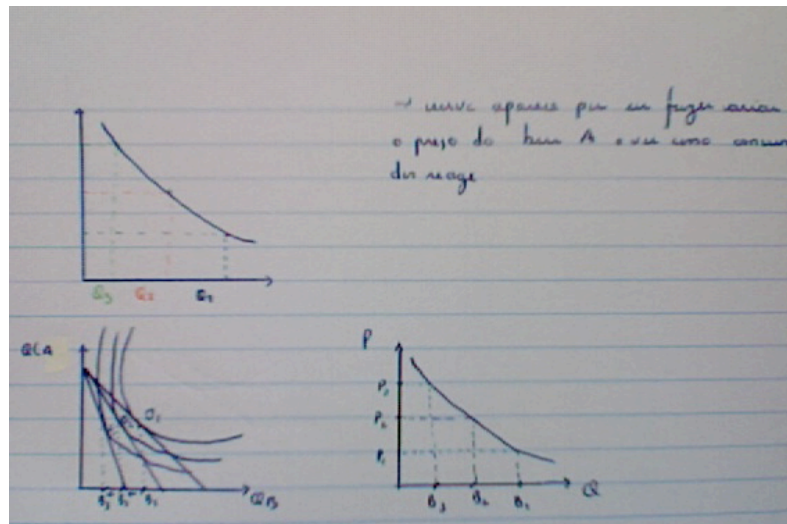 curva aparece por eu fazer variar
o preço do bem A e ver como consum
dor reage
Q3 Q2 Q1
QCA
O1
B3 B2 B1 QB
P
P3
P2
P1
B3 B2 B1 Q